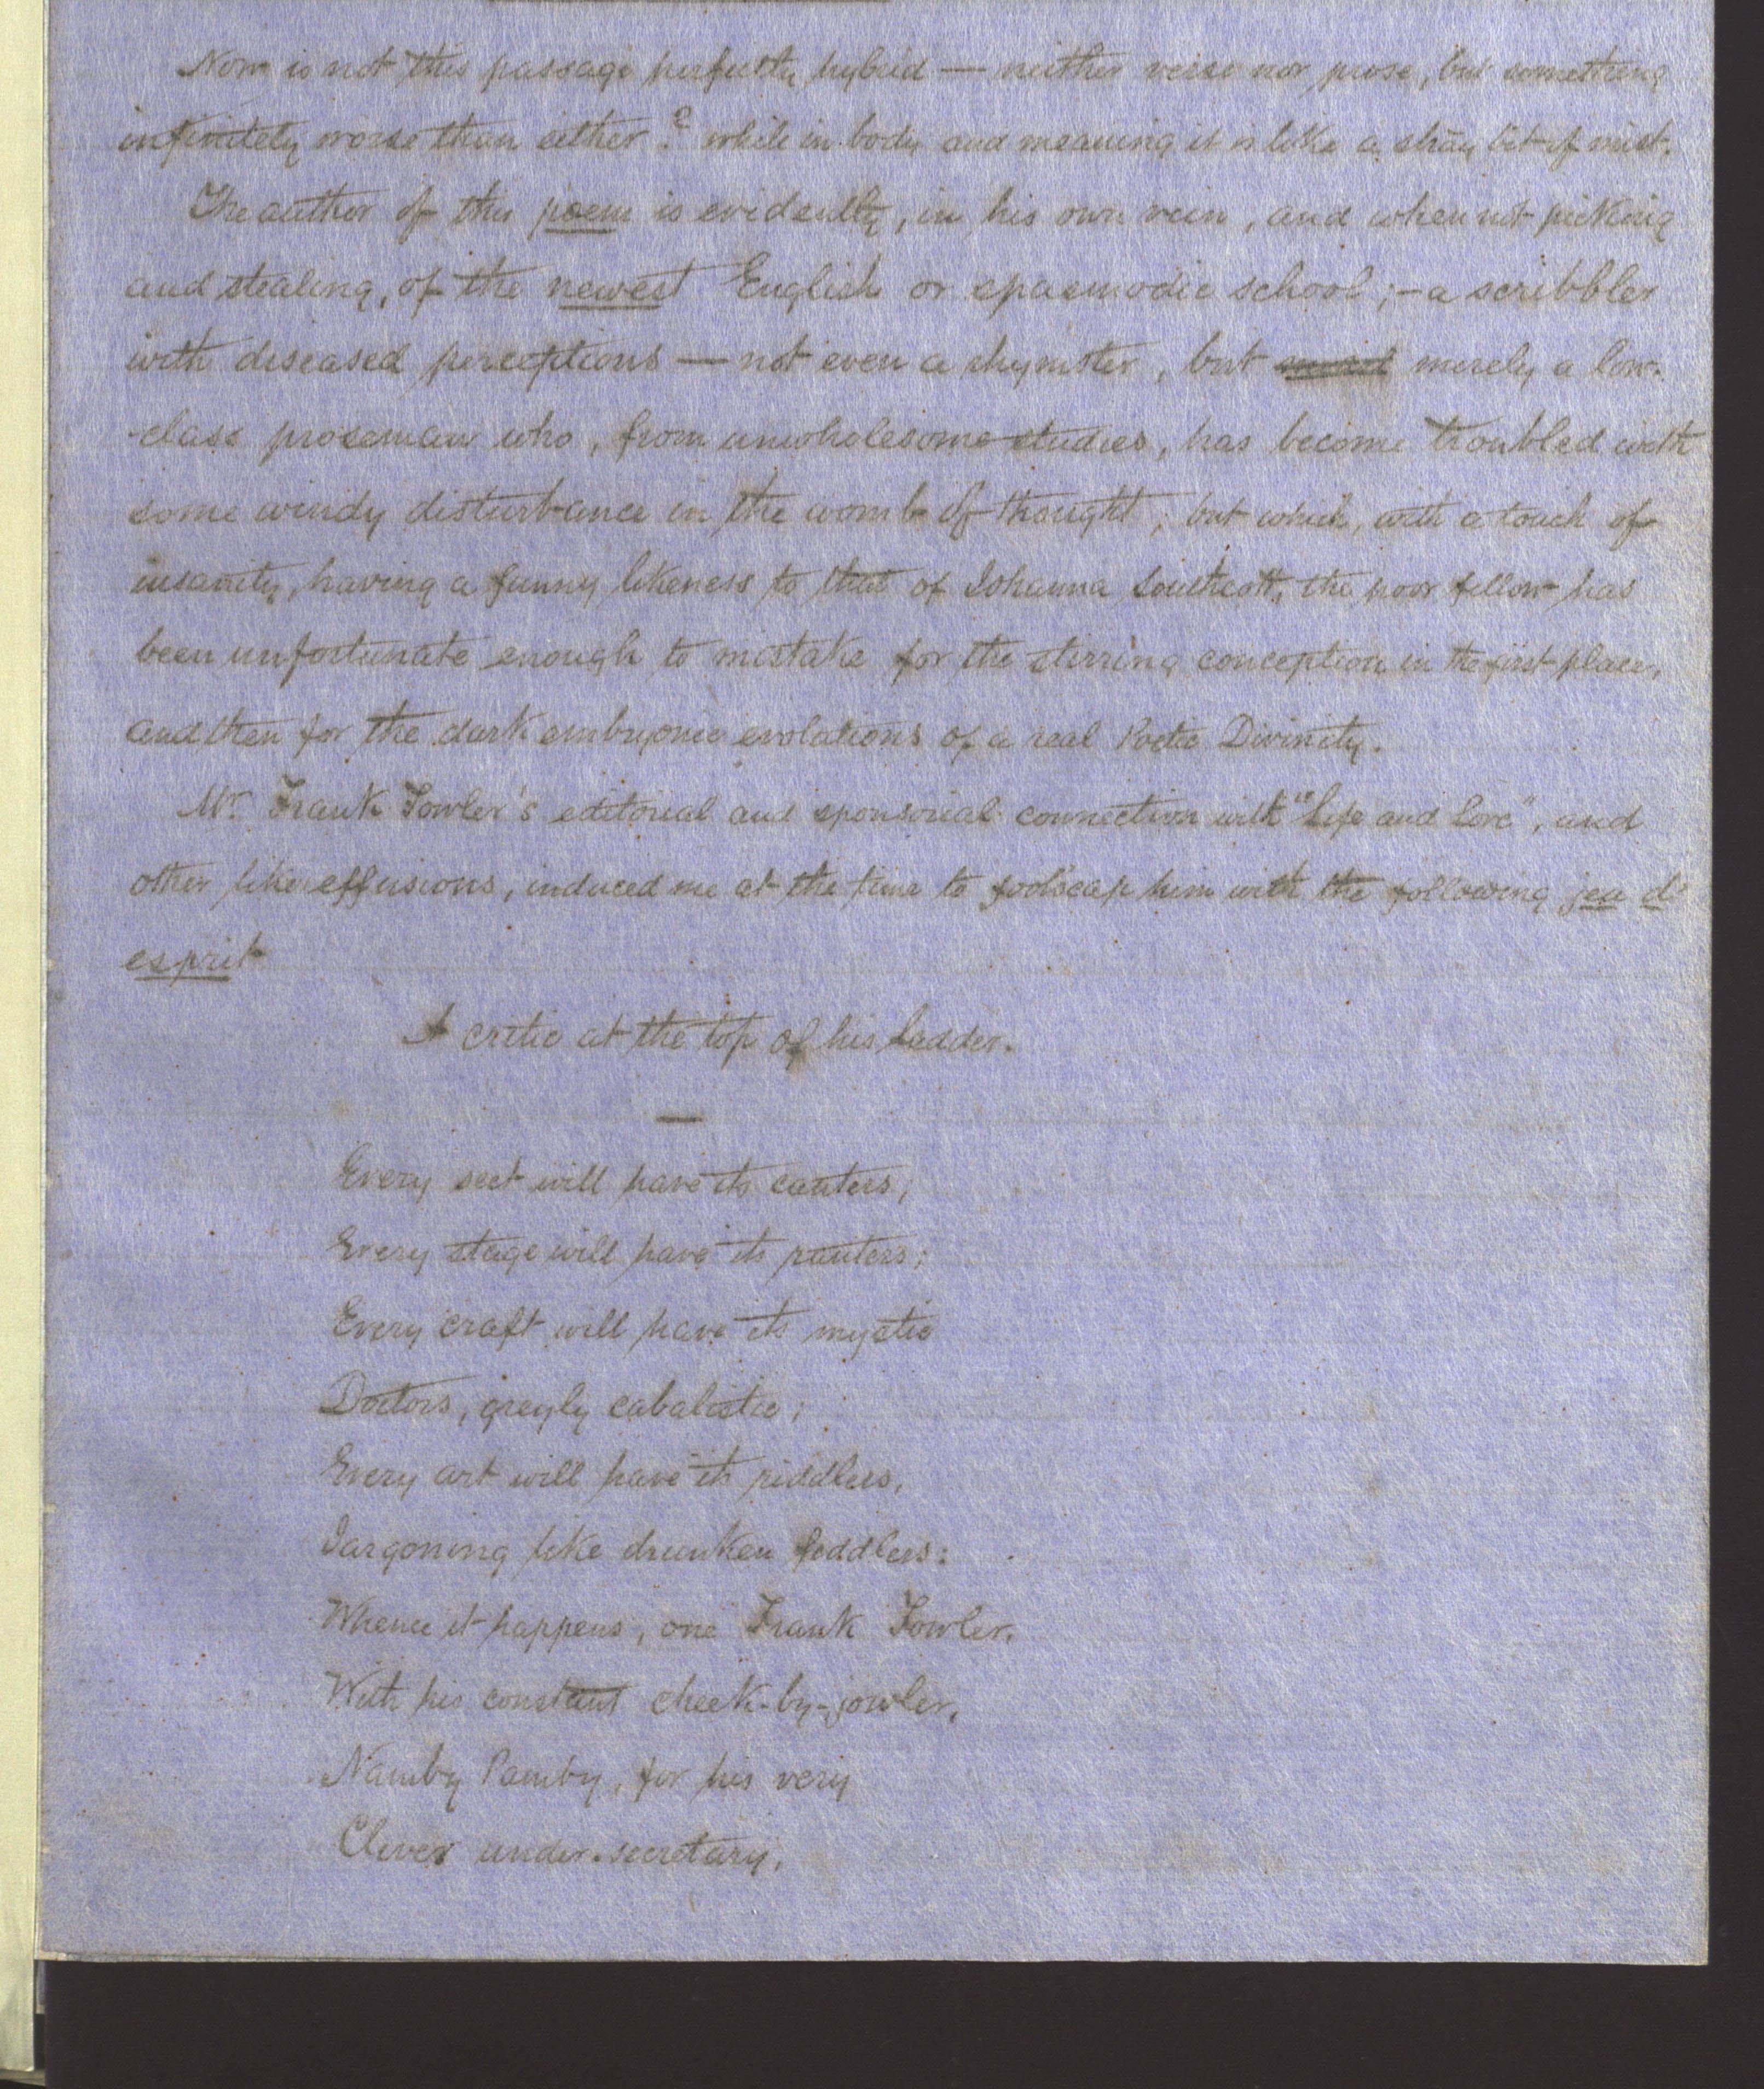 Now is not this passage perfectly hybrid — neither verse nor prose, but something
infinitely worse than either? while in body and meaning it is like a stray bit of mist.
The author of this poem is evidently, in his own vein, and when not picking
and stealing, of the newest English or spasmodic school; – a scribbler
with diseased perceptions — not even a rhymster, but merely a low-
class proseman who, from unwholesome studies, has become troubled with
some windy disturbance in the womb of thought; but which, with a touch of
insanity, having a funny likeness to that of Johanna Southcott, the poor fellow has
been unfortunate enough to mistake for the stirring conception in the first place,
and then for the dark embryonic evolations of a real Poetic Divinity.
Mr. Frank Fowler's editorial and sponsorial connection with "Life and Love", and
other like effusions, induced me at the time to foolscap him with the following jeu d'
esprit
A critic at the top of his ladder.
—
Every sect will have its canters,
Every stage will have its ranters;
Every craft will have its mystic
Doctors, greyly cabalistic;
Every art will have its riddlers,
Jargoning like drunken fiddlers:
Whence it happens, one Frank Fowler,
With his constant cheek-by-jowler,
Namby Pamby, for his very
Clever under-secretary,